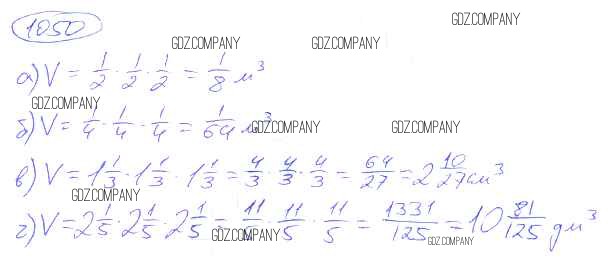 1050
GDZ.COMPANY
GDZ.COMPANY GDZ.COMPANY
а) V = 1/2 · 1/2 · 1/2 = 1/8 м³
GDZ.COMPANY
б) V = 1/4 · 1/4 · 1/4 = 1/64 м³
GDZ.COMPANY GDZ.COMPANY
в) V = 1 1/3 · 1 1/3 · 1 1/3 = 4/3 · 4/3 · 4/3 = 64/27 = 2 10/27 см³
GDZ.COMPANY
г) V = 2 1/5 · 2 1/5 · 2 1/5 = 11/5 · 11/5 · 11/5 = 1331/125 = 10 81/125 дм³
GDZ.COMPANY GDZ.COMPANY